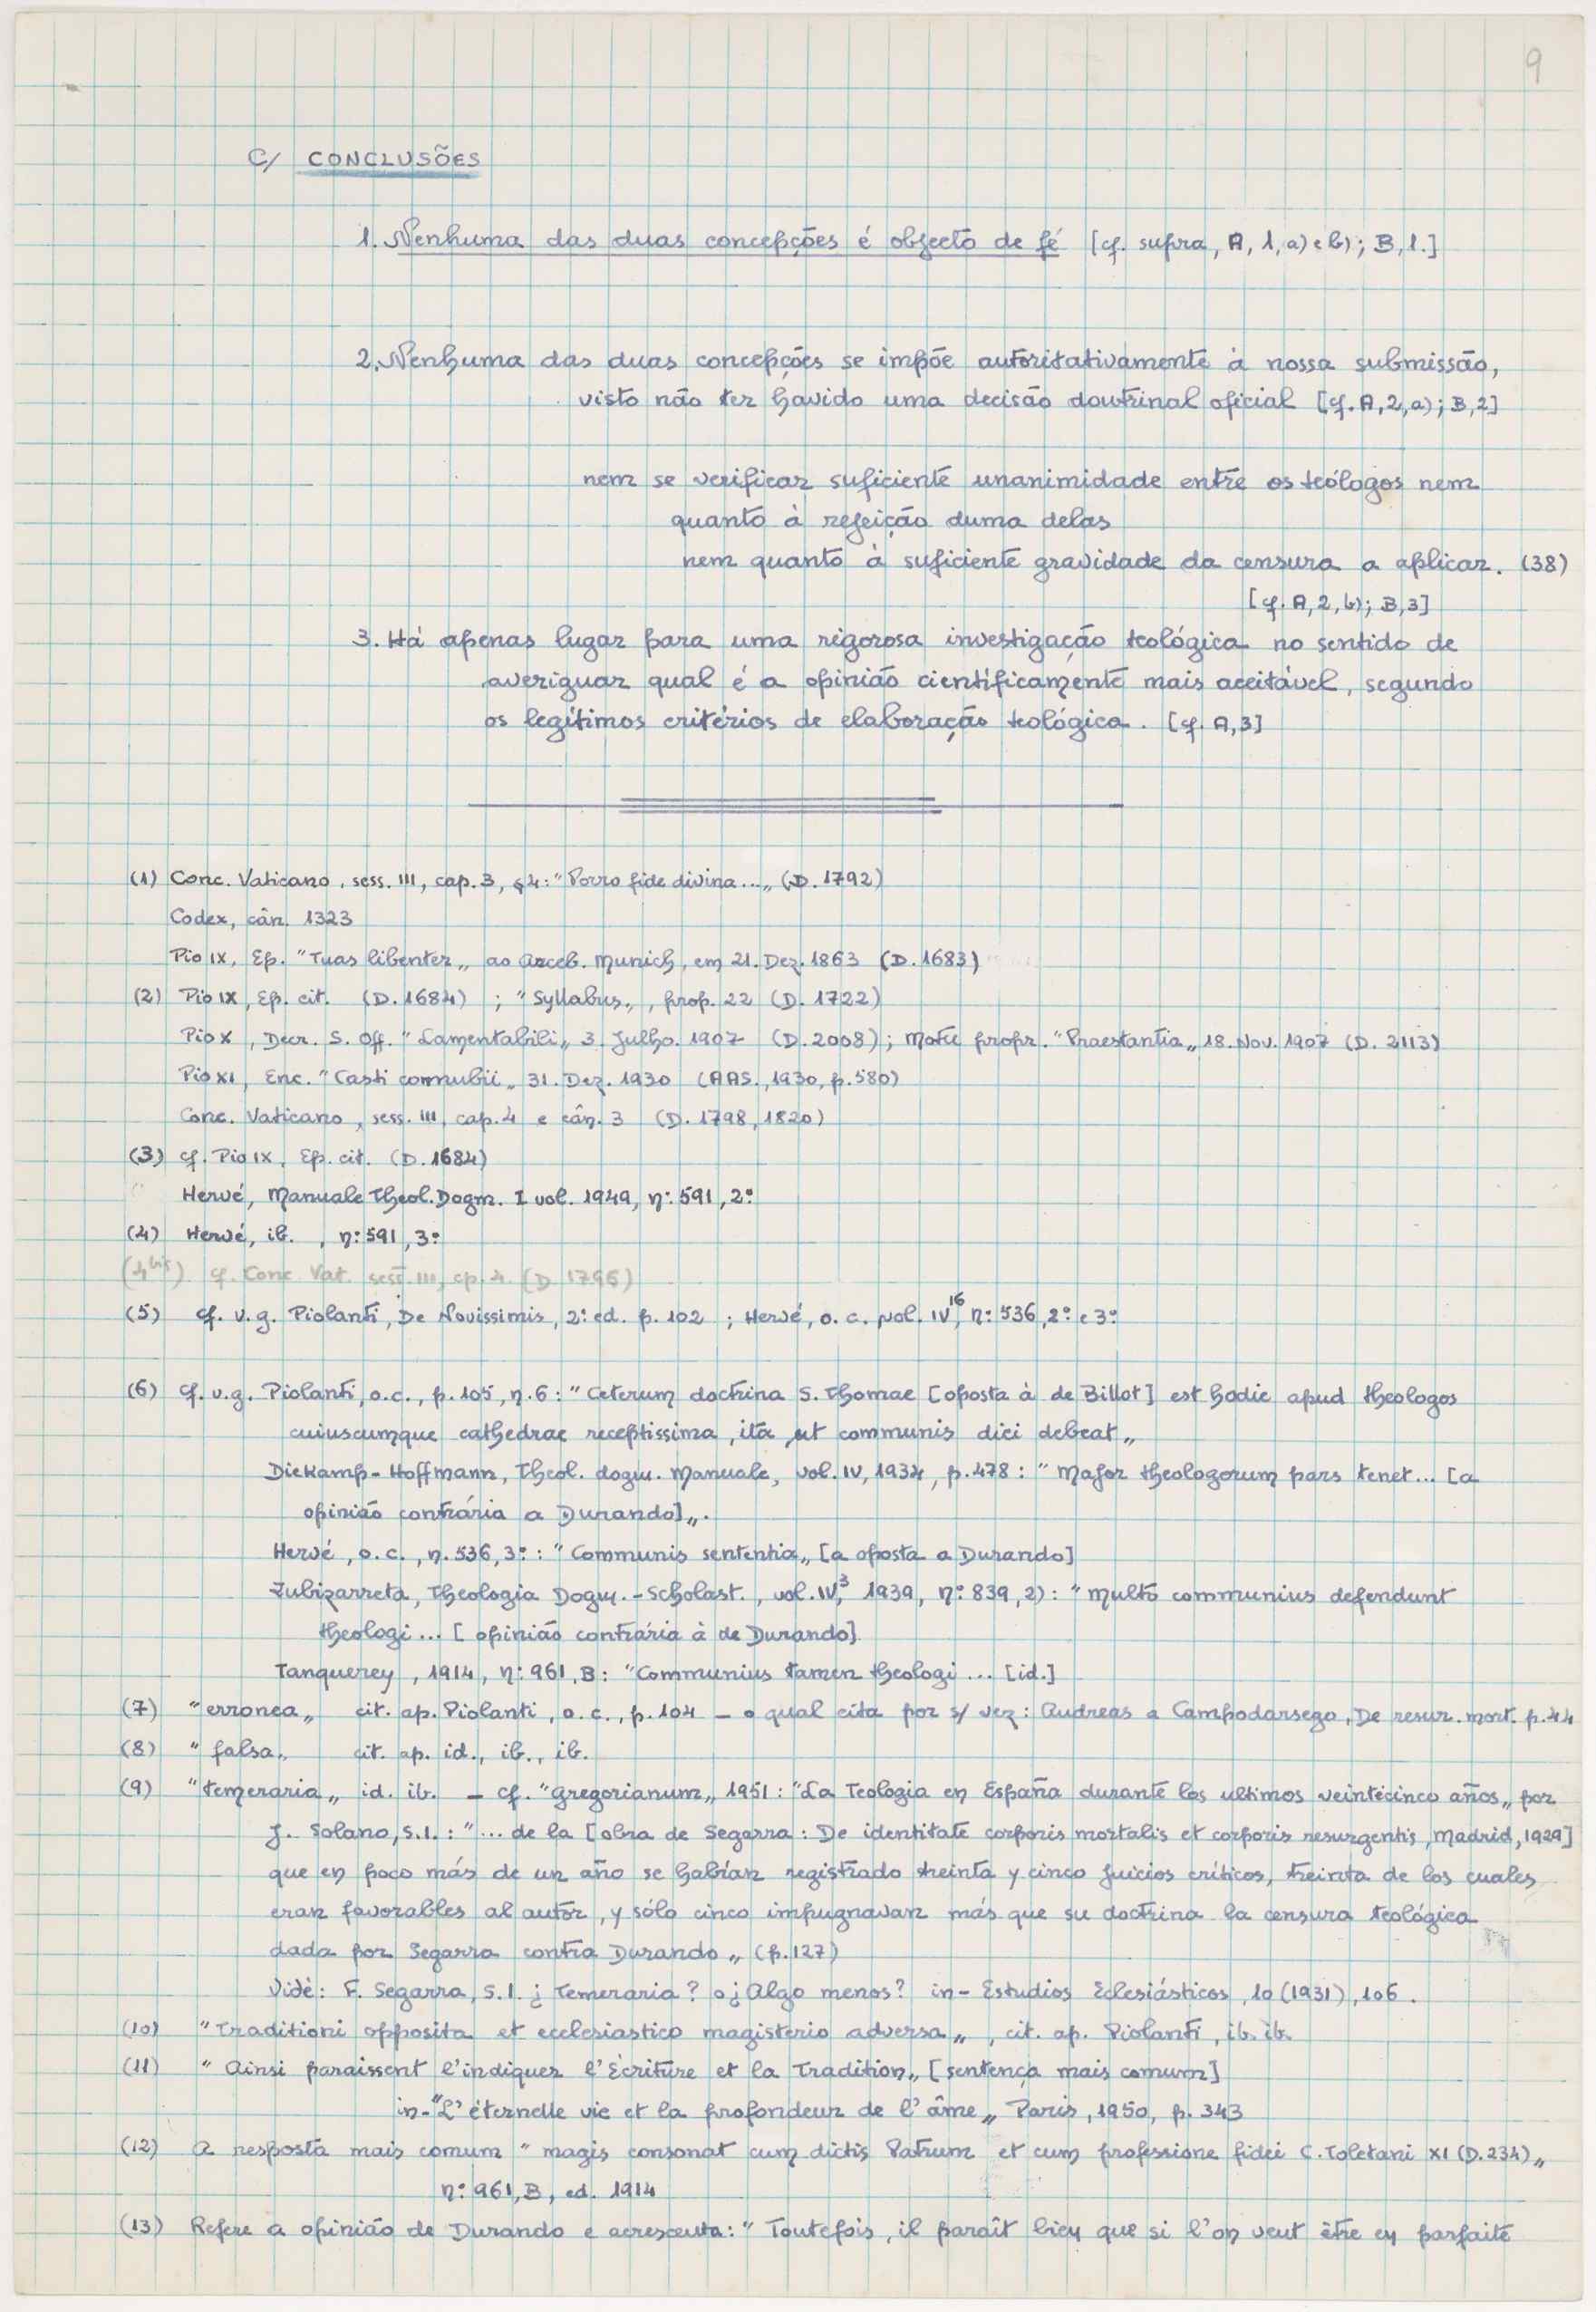 9
C/ CONCLUSÕES
1. Nenhuma das duas concepções é objecto de fé [cf. supra, A, 1, a) e b); B, 1.]
2. Nenhuma das duas concepções se impõe autoritativamente à nossa submissão,
visto não ter havido uma decisão doutrinal oficial [cf. A, 2, a); B, 2]
nem se verificar suficiente unanimidade entre os teólogos nem
quanto à rejeição duma delas
nem quanto à suficiente gravidade da censura a aplicar. (38)
[cf. A, 2, b); B, 3]
3. Há apenas lugar para uma rigorosa investigação teológica no sentido de
averiguar qual é a opinião científicamente mais aceitável, segundo
os legítimos critérios de elaboração teológica. [cf. A, 3]
(1) Conc. Vaticano, sess. III, cap. 3, §4: "Porro fide divina..." (D. 1792)
Codex, cân. 1323
Pio IX, Ep. "Tuas libenter" ao arceb. Munich, em 21. Dez. 1863 (D. 1683)
(2) Pio IX, Ep. cit. (D. 1684) ; "Syllabus", prop. 22 (D. 1722)
Pio X, Decr. S. Off. "Lamentabili" 3 Julho. 1907 (D. 2008); Motu propr. "Praestantia" 18. Nov. 1907 (D. 2113)
Pio XI, Enc. "Casti connubii" 31. Dez. 1930 (AAS., 1930, p. 580)
Conc. Vaticano, sess. III, cap. 4 e cân. 3 (D. 1798, 1820)
(3) cf. Pio IX, Ep. cit. (D. 1684)
Hervé, Manuale Theol. Dogm. I vol. 1949, nº 591, 2º
(4) Hervé, ib. , nº 591, 3º
(4 bis) cf. Conc. Vat. sess. III, cp. 4. (D. 1796)
(5) cf. v.g. Piolanti, De Novissimis, 2ª ed. p. 102 ; Hervé, o. c. vol. IV16, nº 536, 2º e 3º
(6) cf. v.g. Piolanti, o.c., p. 105, n. 6: "Ceterum doctrina S. Thomae [oposta à de Billot] est hodie apud theologos
cuiuscumque cathedrae receptissima, ita ut communis dici debeat"
Diekamp-Hoffmann, Theol. dogm. Manuale, vol. IV, 1934, p. 478: "Major theologorum pars tenet... [a
opinião contrária a Durando]".
Hervé, o.c., n. 536, 3º: "Communis sententia" [a oposta a Durando]
Zubizarreta, Theologia Dogm.-Scholast., vol. IV3, 1939, nº 839, 2): "multo communius defendunt
theologi... [opinião contrária à de Durando]
Tanquerey, 1914, nº 961, B: "Communius tamen theologi... [id.]
(7) "erronea" cit. ap. Piolanti, o.c., p. 104 - o qual cita por s/ vez: Andreas a Campodarsego, De resur. mort. p. 44
(8) "falsa" cit. ap. id., ib., ib.
(9) "temeraria" id. ib. - cf. "Gregorianum" 1951: "La Teologia en España durante los ultimos veinticinco años" por
J. Solano, S.I.: "... de la [obra de Segarra: De identitate corporis mortalis et corporis resurgentis, Madrid, 1929]
que en poco más de un año se habían registrado treinta y cinco juicios críticos, treinta de los cuales
eran favorables al autor, y sólo cinco impugnavan más que su doctrina la censura teológica
dada por Segarra contra Durando" (p. 127)
Vidè: F. Segarra, S.I. ¿Temeraria? o ¿Algo menos? in- Estudios Eclesiásticos, 10 (1931), 106.
(10) "Traditioni opposita et ecclesiastico magisterio adversa", cit. ap. Piolanti, ib. ib.
(11) "Ainsi paraissent l'indiquer l'Écriture et la Tradition" [sentença mais comum]
in- "L'éternelle vie et la profondeur de l'âme" Paris, 1950, p. 343
(12) A resposta mais comum "magis consonat cum dictis Patrum et cum professione fidei C. Toletani XI (D. 234)"
nº 961, B, ed. 1914
(13) Refere a opinião de Durando e acrescenta: "Toutefois, il paraît bien que si l'on veut être en parfaite